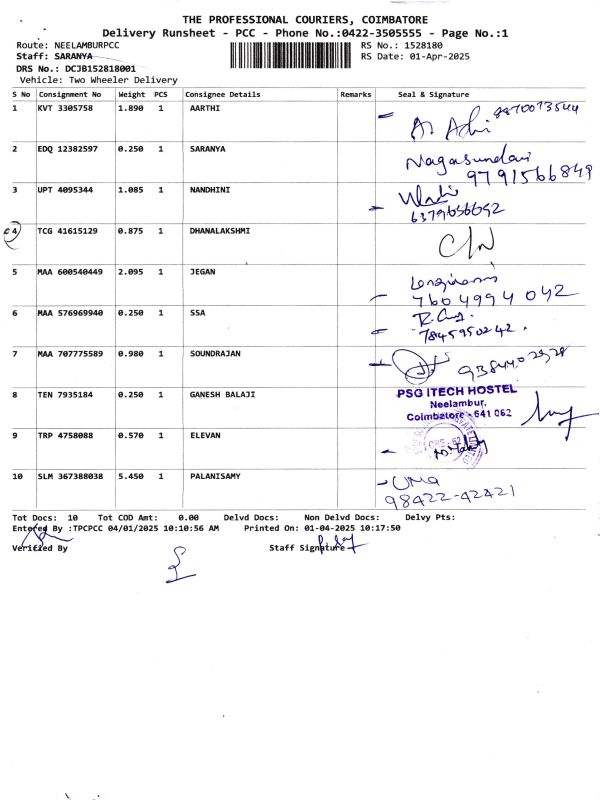 THE PROFESSIONAL COURIERS, COIMBATORE
Delivery Runsheet - PCC - Phone No.:0422-3505555 - Page No.:1
Route: NEELAMBURPCC RS No.: 1528180
Staff: SARANYA RS Date: 01-Apr-2025
DRS No.: DCJB152818001
Vehicle: Two Wheeler Delivery
S No Consignment No Weight PCS Consignee Details Remarks Seal & Signature
1 KVT 3305758 1.890 1 AARTHI
2 EDQ 12382597 0.250 1 SARANYA Nagasundari
9791566849
3 UPT 4095344 1.085 1 NANDHINI
6379656692
4 TCG 41615129 0.875 1 DHANALAKSHMI
5 MAA 600540449 2.095 1 JEGAN
7604994042
6 MAA 576969940 0.250 1 SSA
7845950242.
7 MAA 707775589 0.980 1 SOUNDRAJAN
8 TEN 7935184 0.250 1 GANESH BALAJI PSG ITECH HOSTEL
Neelambur,
Coimbatore - 641 062
9 TRP 4758088 0.570 1 ELEVAN
10 SLM 367388038 5.450 1 PALANISAMY - UMA
98422-42421
Tot Docs: 10 Tot COD Amt: 0.00 Delvd Docs: Non Delvd Docs: Delvy Pts:
Entered By :TPCPCC 04/01/2025 10:10:56 AM Printed On: 01-04-2025 10:17:50
Verified By Staff Signature